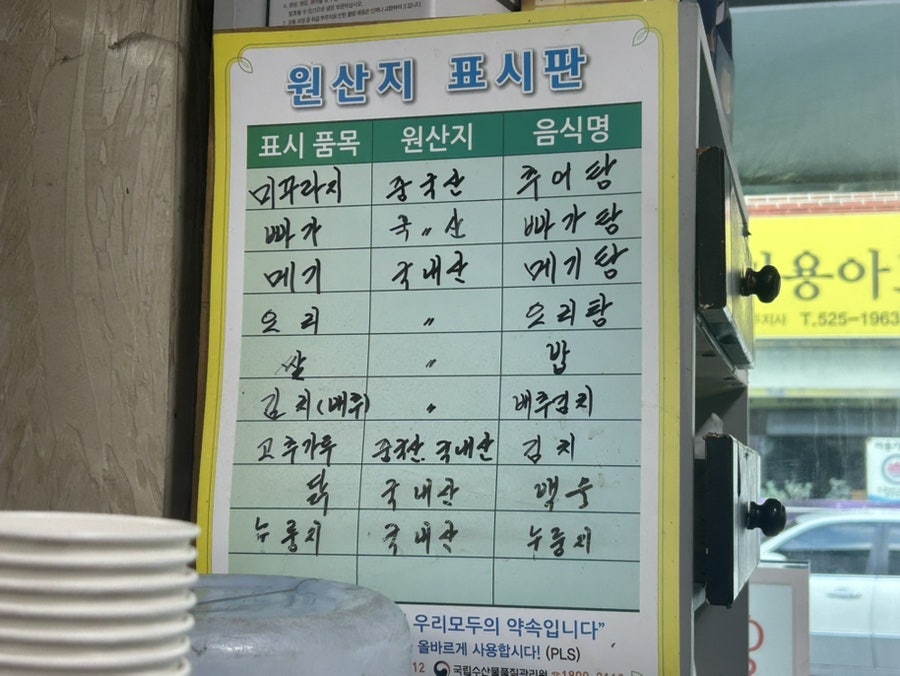 원산지 표시판
표시 품목 원산지 음식명
미꾸라지 중국산 추어탕
빠가 국〃산 빠가탕
메기 국내산 메기탕
오리 〃 오리탕
쌀 〃 밥
김치(배추) 〃 배추김치
고추가루 중국산 국내산 김치
닭 국내산 백숙
누룽지 국내산 누룽지
우리모두의 약속입니다"
올바르게 사용합시다! (PLS)
12 국립수산물품질관리원
용아
T.525-1963